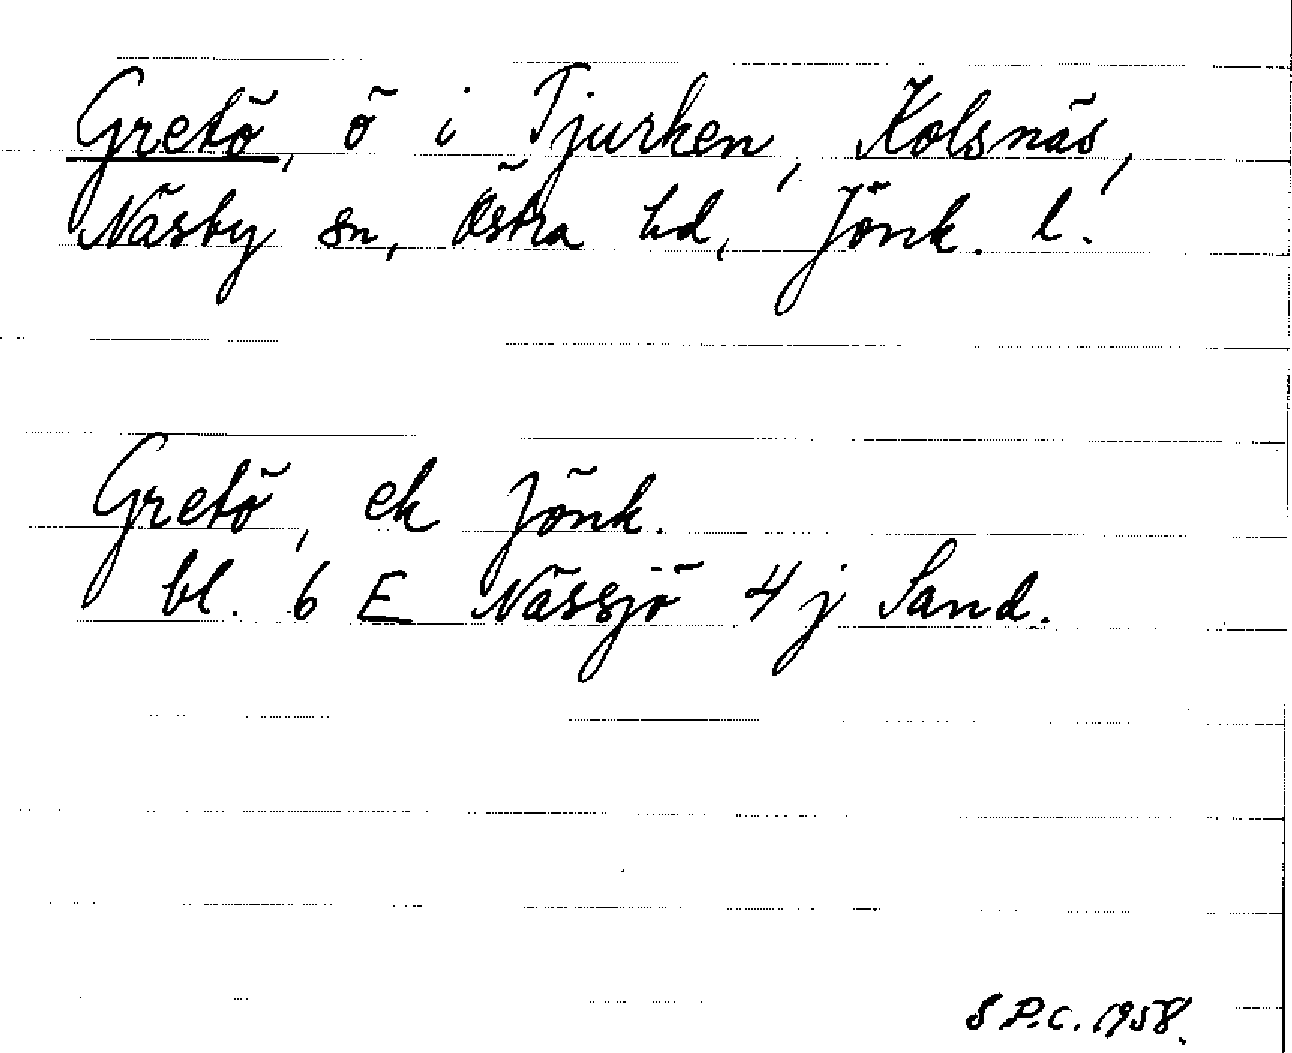 Gretö, ö i Tjurken, Kolsnäs,
Näsby sn, Östra hd, Jönk. l.
Gretö, ek Jönk.
bl. 6 E Nässjö 4 j Sand.
S P.C. 1958.